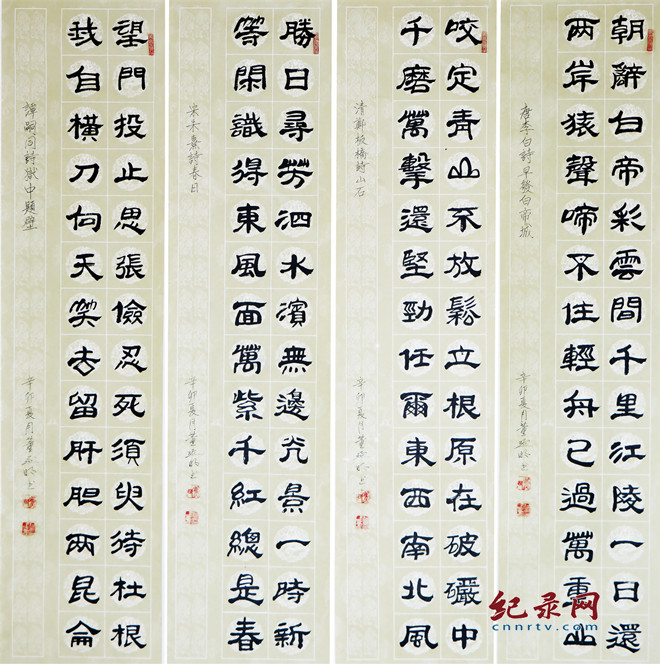 朝辭白帝彩雲間千里江陵一日還
兩岸猿聲啼不住輕舟已過萬重山
唐李白詩早發白帝城
辛卯夏月董
咬定青山不放鬆立根原在破礹中
千磨萬擊還堅勁任爾東西南北風
清鄭板橋詩山石
辛卯夏月董
勝日尋芳泗水濱無邊光景一時新
等閑識得東風面萬紫千紅總是春
宋朱熹詩春日
辛卯夏月董
望門投止思張儉忍死須臾待杜根
我自橫刀向天笑去留肝胆兩昆侖
譚嗣同詩獄中題壁
辛卯夏月董
纪录网
cnnrtv.com